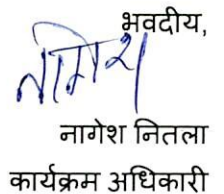 भवदीय,
नागेश
नागेश नितला
कार्यक्रम अधिकारी